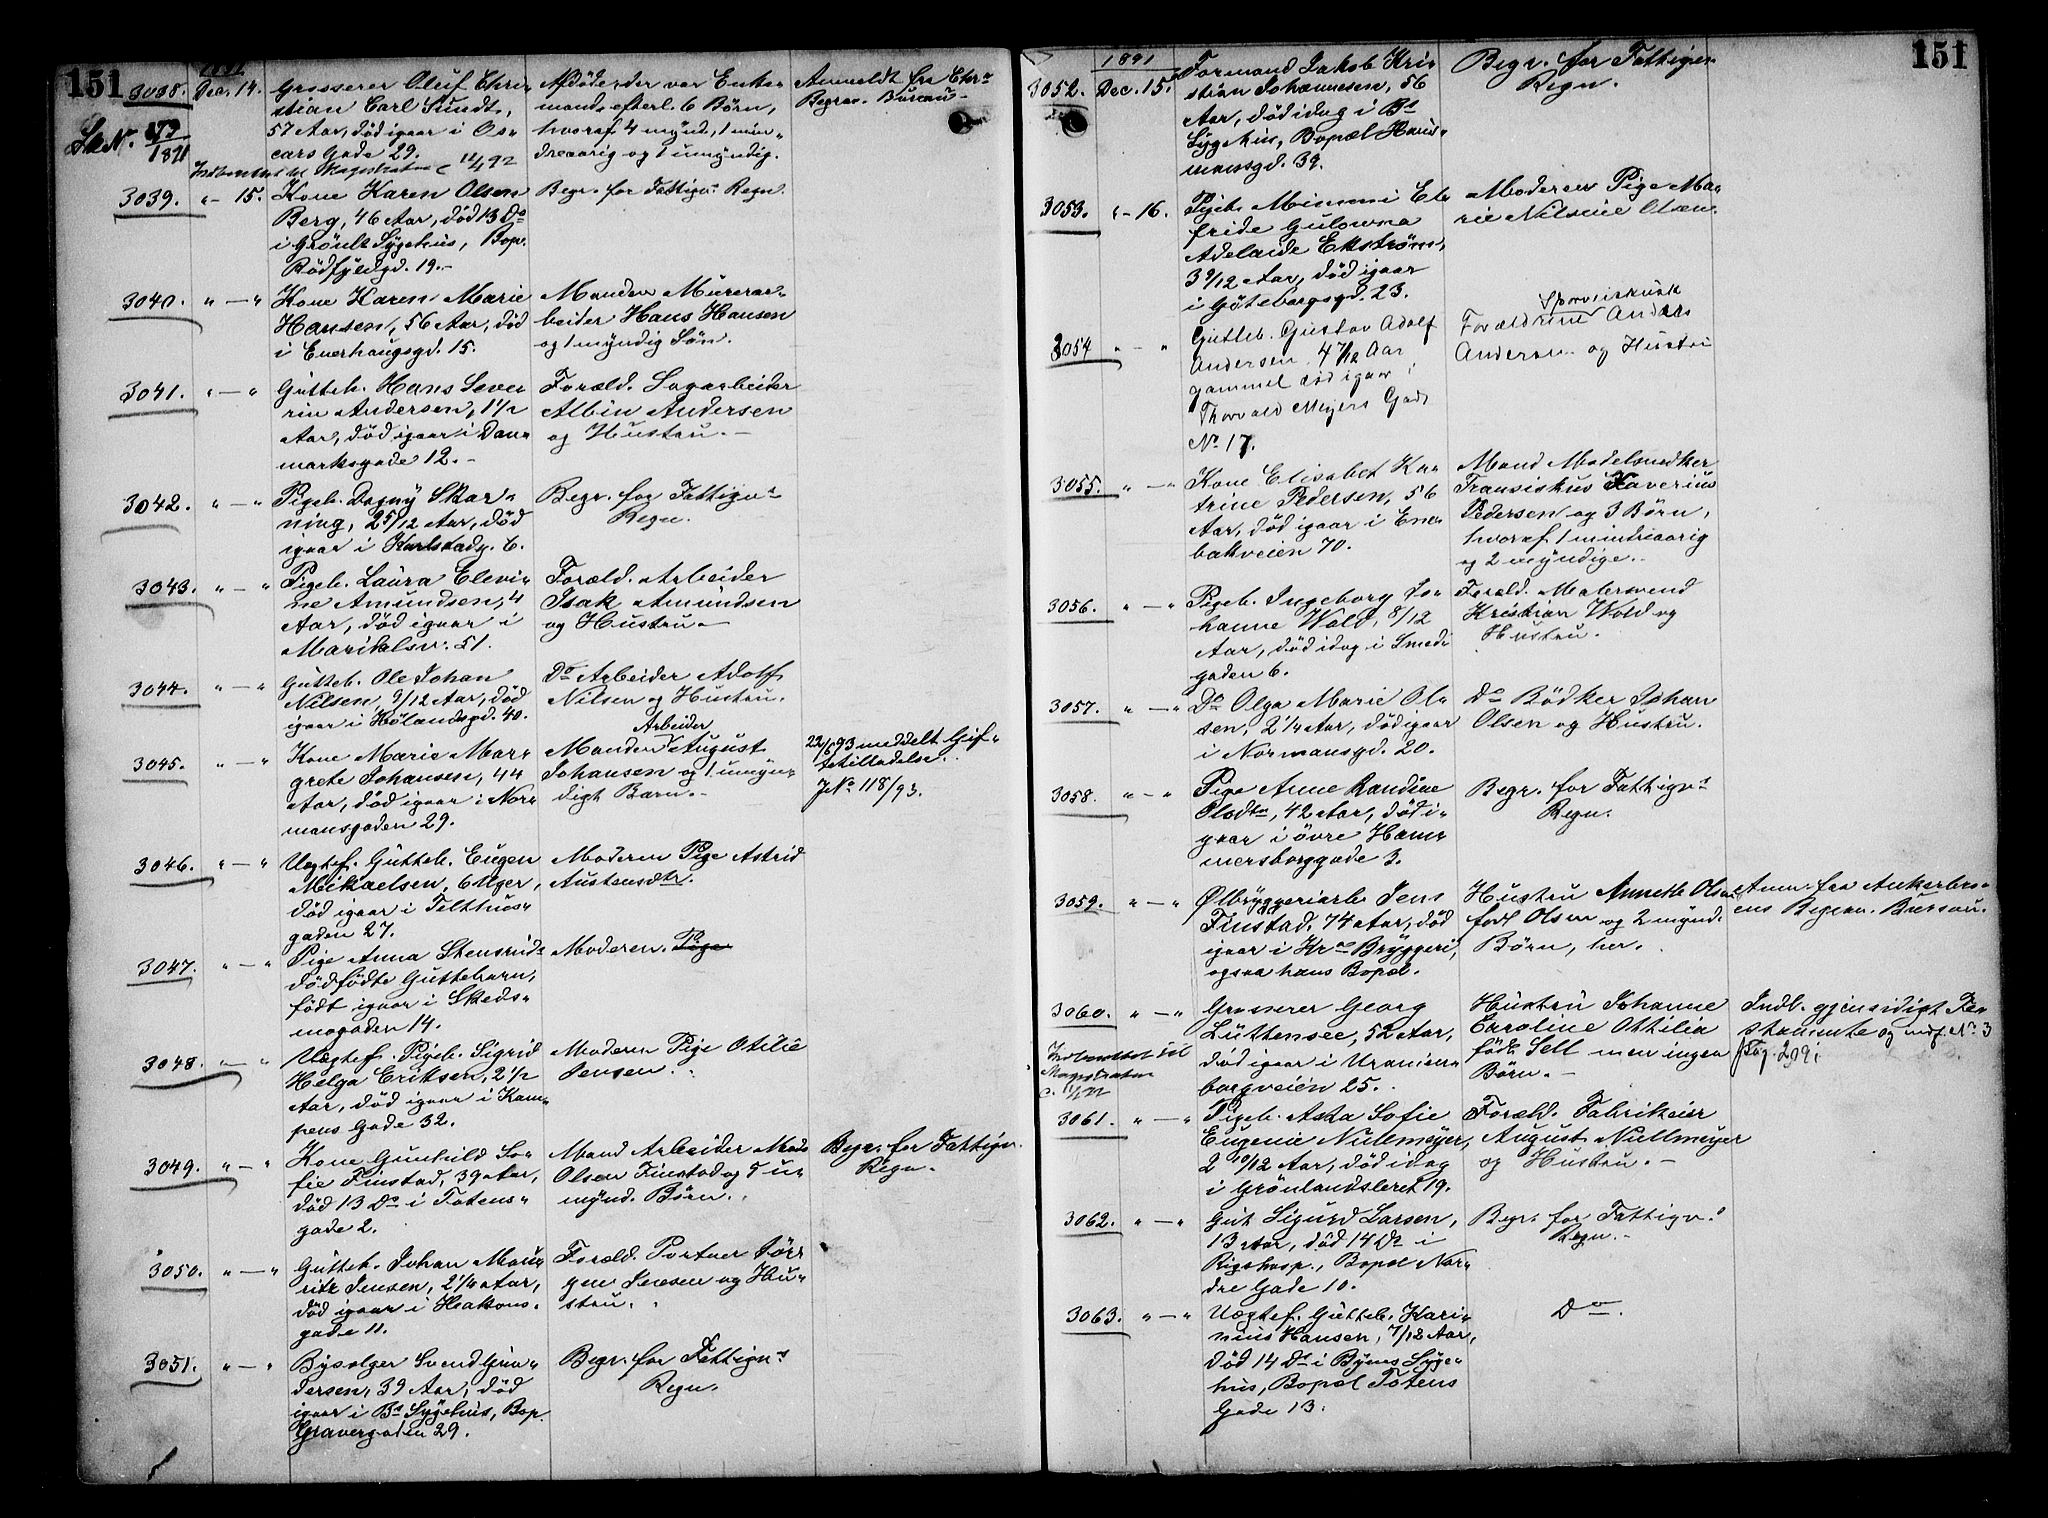 151
1891
3038. Dec. 14. Grosserer Oluf Chri-
stian Carl Sundt,
57 Aar, død igaar i Os-
cars Gade 29.
Afdøde der var Enke-
mand, efterl. 6 Børn,
hvoraf 4 mynd., 1 min-
dreaarig og 1 umyndig.
Anmeldt fra Chr.a
Begrav. Bureau
173
1891
12/4 92
3039. " - 15. Kone Karen Olsen
Berg, 46 Aar, død 13 Ds
i Grønl. Sygehus, Bop.
Rødfyldgd. 19.
Begr. for Fattigv.s Regn.
3040. " — " Kone Karen Marie
Hansen, 56 Aar, død
i Enerhaugsgd. 15.
Manden Murerar-
beider Hans Hansen
og 1 myndig Søn.
3041. " — " Gutteb. Hans Seve-
rin Andersen, 1 1/2
Aar, død igaar i Dan-
marksgade 12.
Foræld. Sagarbeider
Albin Andersen
og Hustru.
3042. " — " Pigeb. Dagny Skar-
ning, 2 5/12 Aar, død
igaar i Karlstadg. 6.
Begr. for Fattigv.s
Regn.
3043. " — " Pigeb. Laura Elevi-
ne Amundsen, 4
Aar, død igaar i
Maridalsv. 51.
Foræld. Arbeider
Isak Amundsen
og Hustru.
3044. " — " Gutteb. Ole Johan
Nilsen, 9/12 Aar, død
igaar i Hølandsgd. 40.
Do Arbeider Adolf
Nilsen og Hustru.
3045. " — " Kone Marie Mar-
grete Johansen, 44
Aar, død igaar i Nor-
mansgaden 29.
Arbeider
Manden August
Johansen og 1 umyn-
digt Barn.
22/6 93 meddelt Gif-
tetilladelse.
J.No 118/93.
3046. " — " Uægtef. Gutteb. Eugen
Mikaelsen, 6 Uger,
død igaar i Telthus-
gaden 27.
Moderen Pige Astrid
Austensdtr.
3047. " — " Pige Anna Stensruds
dødfødte Guttebarn,
født igaar i Skeds-
mogaden 14.
Moderen. Pige
3048. " — " Uægtef. Pigeb. Sigrid
Helga Eriksen, 2 1/2
Aar, død igaar i Kam-
pens Gade 32.
Moderen Pige Otilie
Jensen.
3049. " — " Kone Gunhild So-
fie Finstad, 39 Aar,
død 13 Ds i Totens-
gade 2.
Mand Arbeider
Olsen Finstad og 5 u-
mynd. Børn.
Begr. for Fattigv.
Regn.
3050. " — " Gutteb. Johan Mau-
ritz Jensen, 2 1/4 Aar,
død igaar i Haakons-
gade 11.
Foræld. Portner Jør-
gen Jensen og Hu-
stru.
3051. " — " Bysolger Svend Gun-
dersen, 39 Aar, død
igaar i Bs Sygehus, Bop.
Gravergaden 29.
Begr. for Fattigv.s
Regn.
151
1891
3052. Dec. 15. Formand Jakob Kri-
stian Johannesen, 56
Aar, død idag i Bs
Sygehus, Bopæl Haus-
mansgd. 39.
Begr. for Fattigv.
Regn.
3053. " - 16. Pigeb. Mimmi El-
fride Gulowna
Adelaide Ekstrøm,
3 9/12 Aar, død igaar
i Gøteborgsgd. 23.
Moderen Pige Ma-
rie Nilsine Olsen.
3054 " — " Gutteb. Gustav Adolf
Andersen 4 7/12 Aar
gammel død igaar i
Thorvald Meyers Gade
No 17.
Sporveiskusk
Forældrene Anders
Andersen og Hustru
3055. " — " Kone Elisabet Ka-
trine Pedersen, 56
Aar, død igaar i Ene-
bakveien 70.
Mand Modelsnedker
Fransiskus Xaverius
Pedersen og 3 Børn,
hvoraf 1 mindreaarig
og 2 myndige.
3056. " — " Pigeb. Ingeborg Jo-
hanne Wold, 8/12
Aar, død idag i Smed-
gaden 6.
Foræld. Malersvend
Kristian Wold og
Hustru.
3057. " — " Do Olga Marie Ol-
sen, 2 1/4 Aar, død igaar
i Normansgd. 20.
Do Bødker Johan
Olsen og Hustru.
3058. " — " Pige Anne Randine
Olsdtr, 42 Aar, død i-
gaar i øvre Ham-
mersborggade 3.
Begr. for Fattigv.s
Regn.
3059. " — " Ølbryggeriarb. Jens
Finstad, 74 Aar, død
igaar i Kr.as Bryggeri,
ogsaa hans Bopæl.
Hustru Annette Olsen
født Olsen og 2 mynd.
Børn, her.
Anm. fra Ankerløk-
ens Begrav. Bureau.
3060. " — " Grosserer Georg
Lüttensee, 52 Aar,
død igaar i Uranien-
borgveien 25.
Hustru Johanne
Caroline Ottilia
født Sell men ingen
Børn.
Indl. gjensidigt Te-
stamente og indf. No 3
Pag. 209.
Indberettet til
Magistraten
3061. " — " Pigeb. Asta Sofie
Eugenie Nullmeyer,
2 10/12 Aar, død idag
i Grønlandsleret 19.
Foræld. Fabrikeier
August Nullmeyer
og Hustru.
3062. " — " Gut Sigurd Larsen,
13 Aar, død 14 Ds i
Rigshosp., Bopæl Nor-
dre Gade 10.
Begr. for Fattigv.s
Regn.
3063. " — " Uægtef. Gutteb. Kari-
nius Hansen, 7/12 Aar,
død 14 Ds i Byens Syge-
hus, Bopæl Totens
Gade 13.
Do.